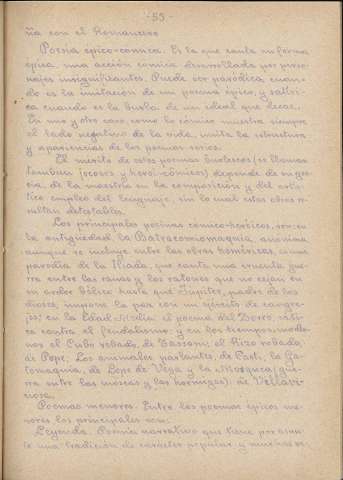 - 55 -
ña con el Romancero
Poesía épico-cómica. Es la que canta en forma
épica una acción cómica desarrollada por perso-
najes insignificantes. Puede ser paródica, cuan-
do es la imitación de un poema épico, y satíri-
ca cuando es la burla de un ideal que decae.
En uno y otro caso, como lo cómico muestra siempre
el lado negativo de la vida, imita la estructura
y apariencias de los poemas serios.
El mérito de estos poemas burlescos (se llaman
tambien jocosos y heroi-cómicos) depende de su gra-
cia, de la maestría en la composición y del artís-
tico empleo del lenguaje, sin lo cual estas obras re-
sultan detestables.
Los principales poemas cómico-heróicos, son: en
la antigüedad, la Batracomiomaquia, anónima
aunque se incluye entre las obras homéricas, como
parodia de la Iliada, que canta una cruenta gue-
rra entre las ranas y los ratones que no cejan en
su ardor bélico hasta que Júpiter, padre de los
dioses, impone la paz con un ejército de cangre-
jos; en la Edad Media el poema del Zorro, sáti-
ra contra el feudalismo; y en los tiempos moder-
nos el Cubo robado, de Tassoni; el Rizo robado,
de Pope; Los animales parlantes, de Casti; la Ga-
tomaquia, de Lope de Vega y la Mosquea (gue-
rra entre las moscas y las hormigas), de Villavi-
ciosa.
Poemas menores. Entre los poemas épicos me-
nores los principales son:
Leyenda. Poema narrativo que tiene por asun-
to una tradición de carácter popular y muchas ve-